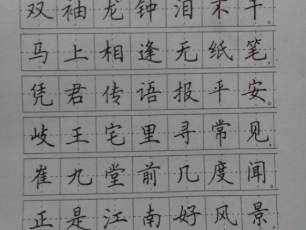 双袖龙钟泪不干
马上相逢无纸笔，
凭君传语报平安。
岐王宅里寻常见，
崔九堂前几度闻。
正是江南好风景，